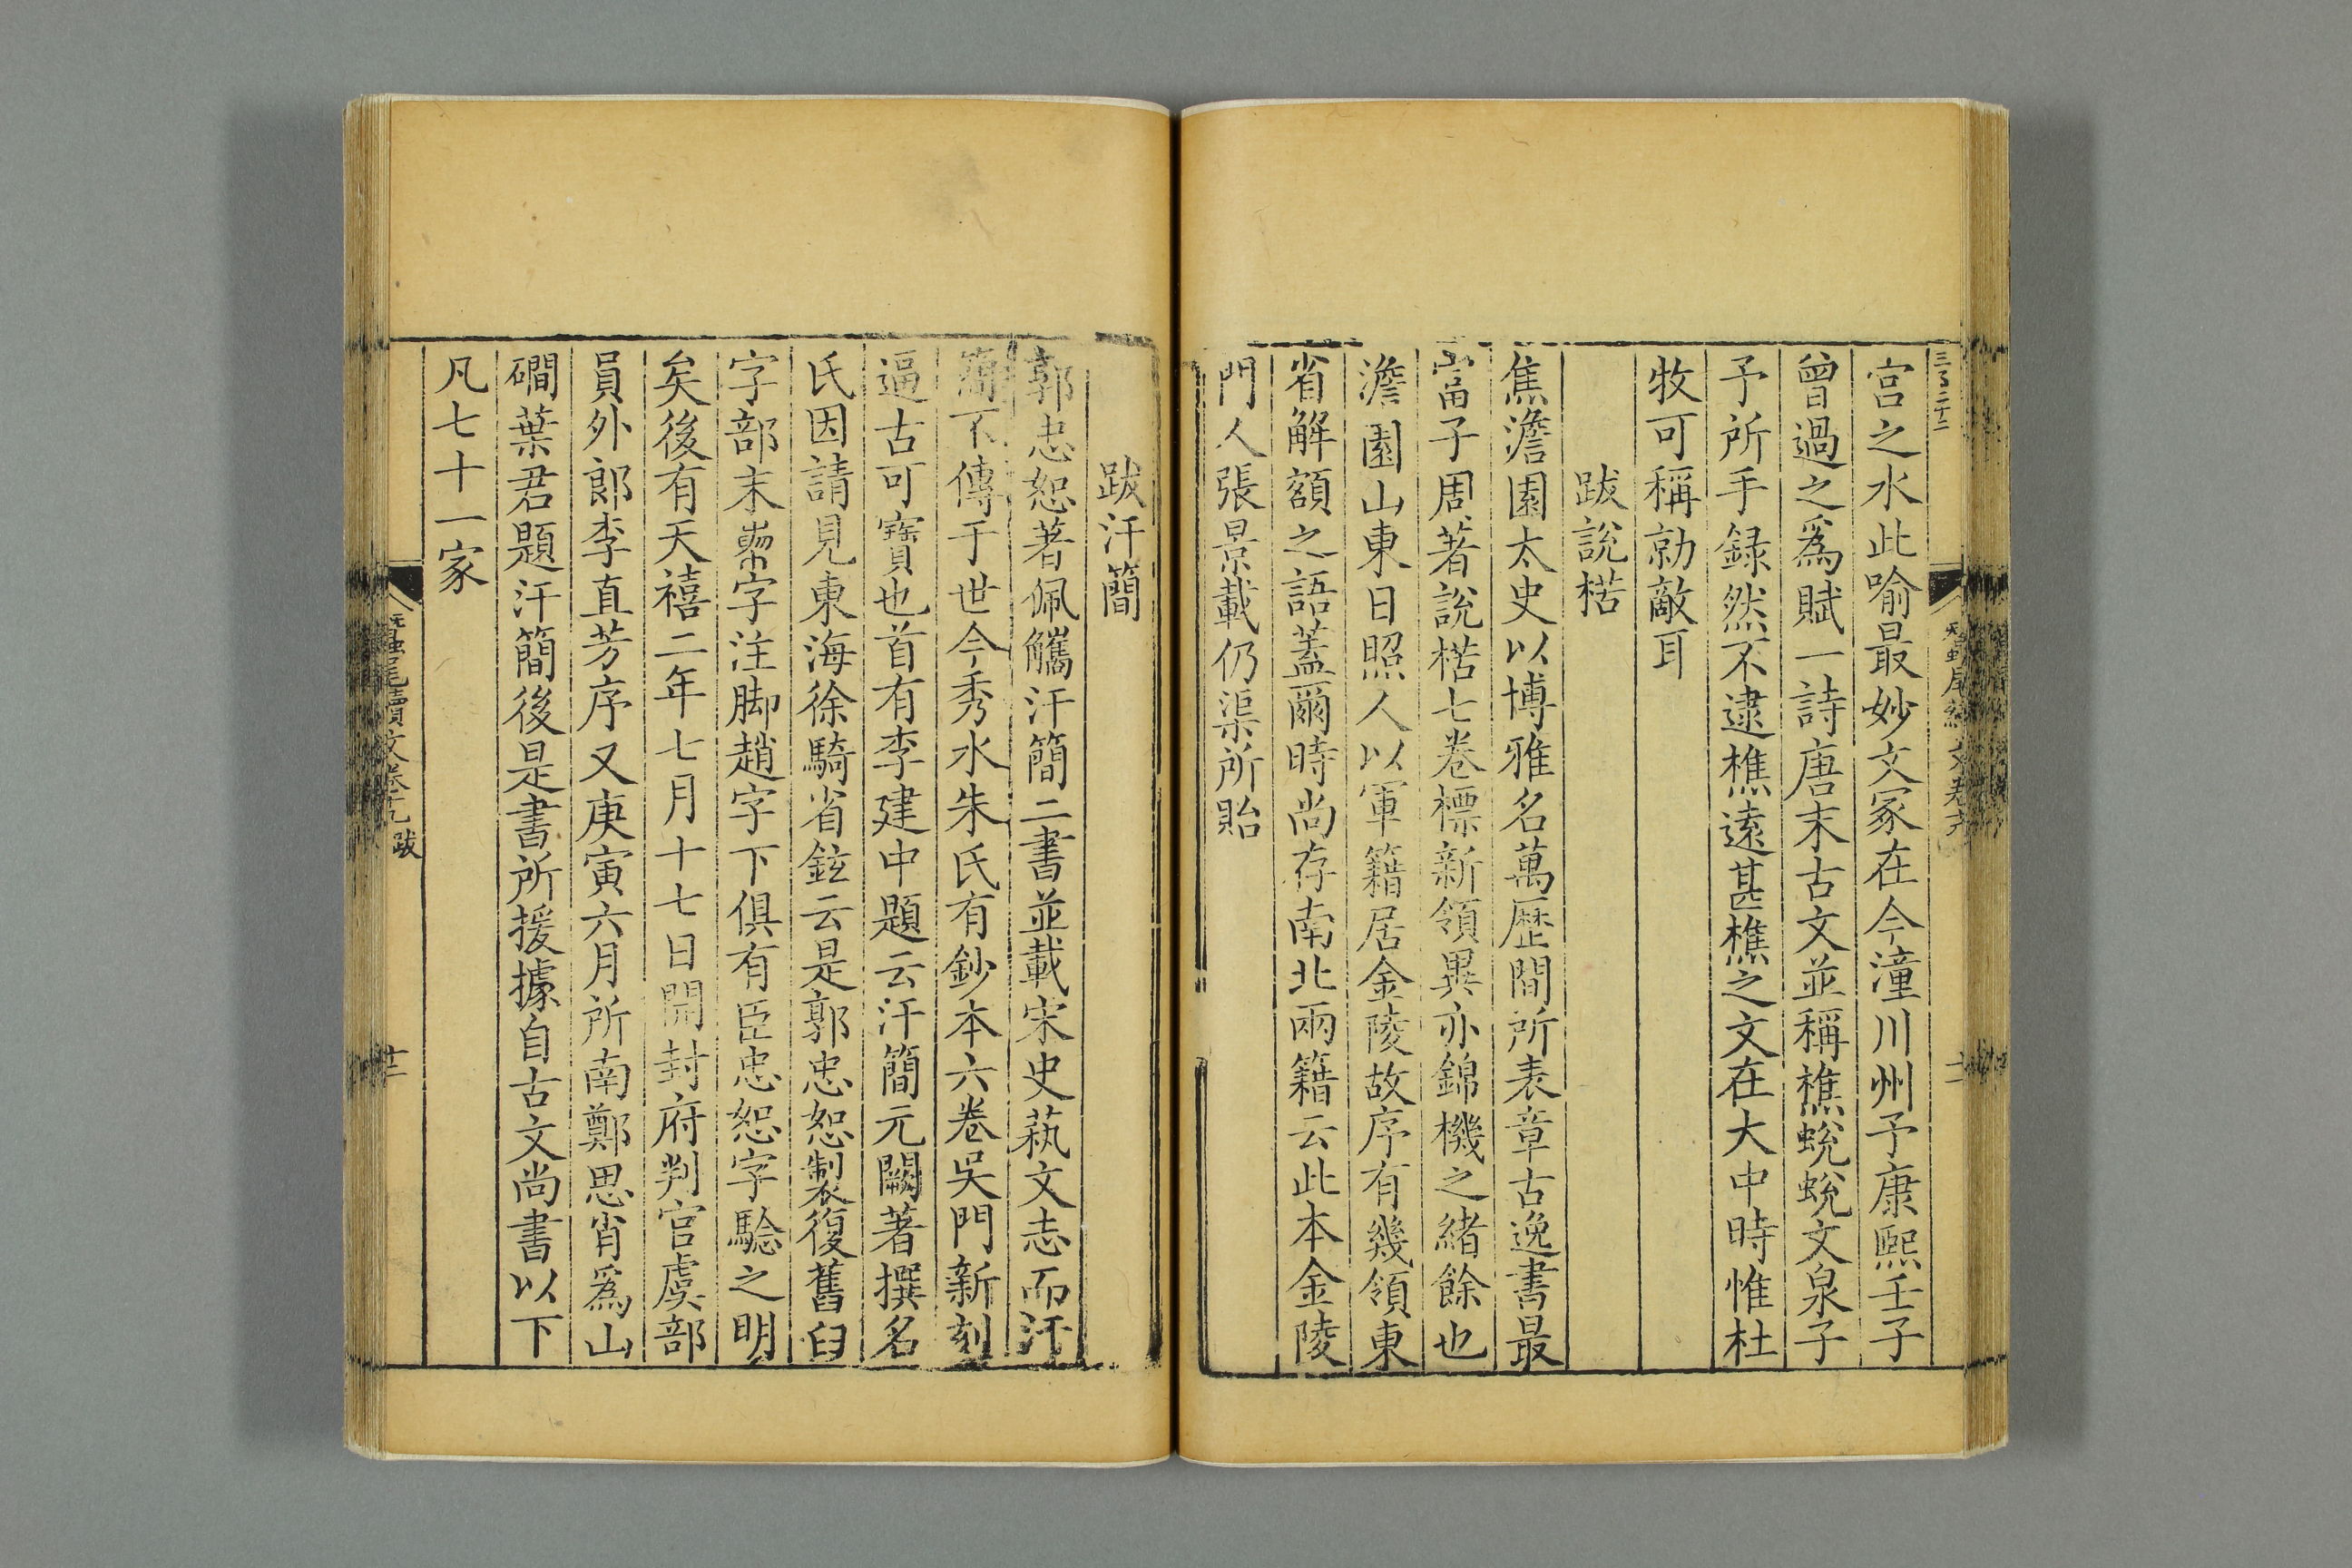 宫之水此喻最妙文冢在今潼川州予康熙壬子
曾過之爲賦一詩唐末古文並稱樵蛻蛻文泉子
予所手録然不逮樵遠甚樵之文在大中時惟杜
牧可稱勍敵耳
跋說楛
焦澹園太史以博雅名萬歷間所表章古逸書最
富子周著說楛七卷標新領異亦錦機之緒餘也
澹園山東日照人以軍籍居金陵故序有幾領東
省解額之語蓋爾時尚存南北兩籍云此本金陵
門人張景載仍渠所貽
跋汗簡
郭忠恕著佩觿汗簡二書並載宋史蓺文志而汗
簡不傳于世今秀水朱氏有鈔本六卷吳門新刻
逼古可寶也首有李建中題云汗簡元闕著撰名
氏因請見東海徐騎省鉉云是郭忠恕製復舊臼
字部末字注脚趙字下俱有臣忠恕字驗之明
矣後有天禧二年七月十七日開封府判官虞部
員外郎李直芳序又庚寅六月所南鄭思肖爲山
磵葉君題汗簡後是書所援據自古文尚書以下
凡七十一家
蠶尾續文卷十九 跋
十二